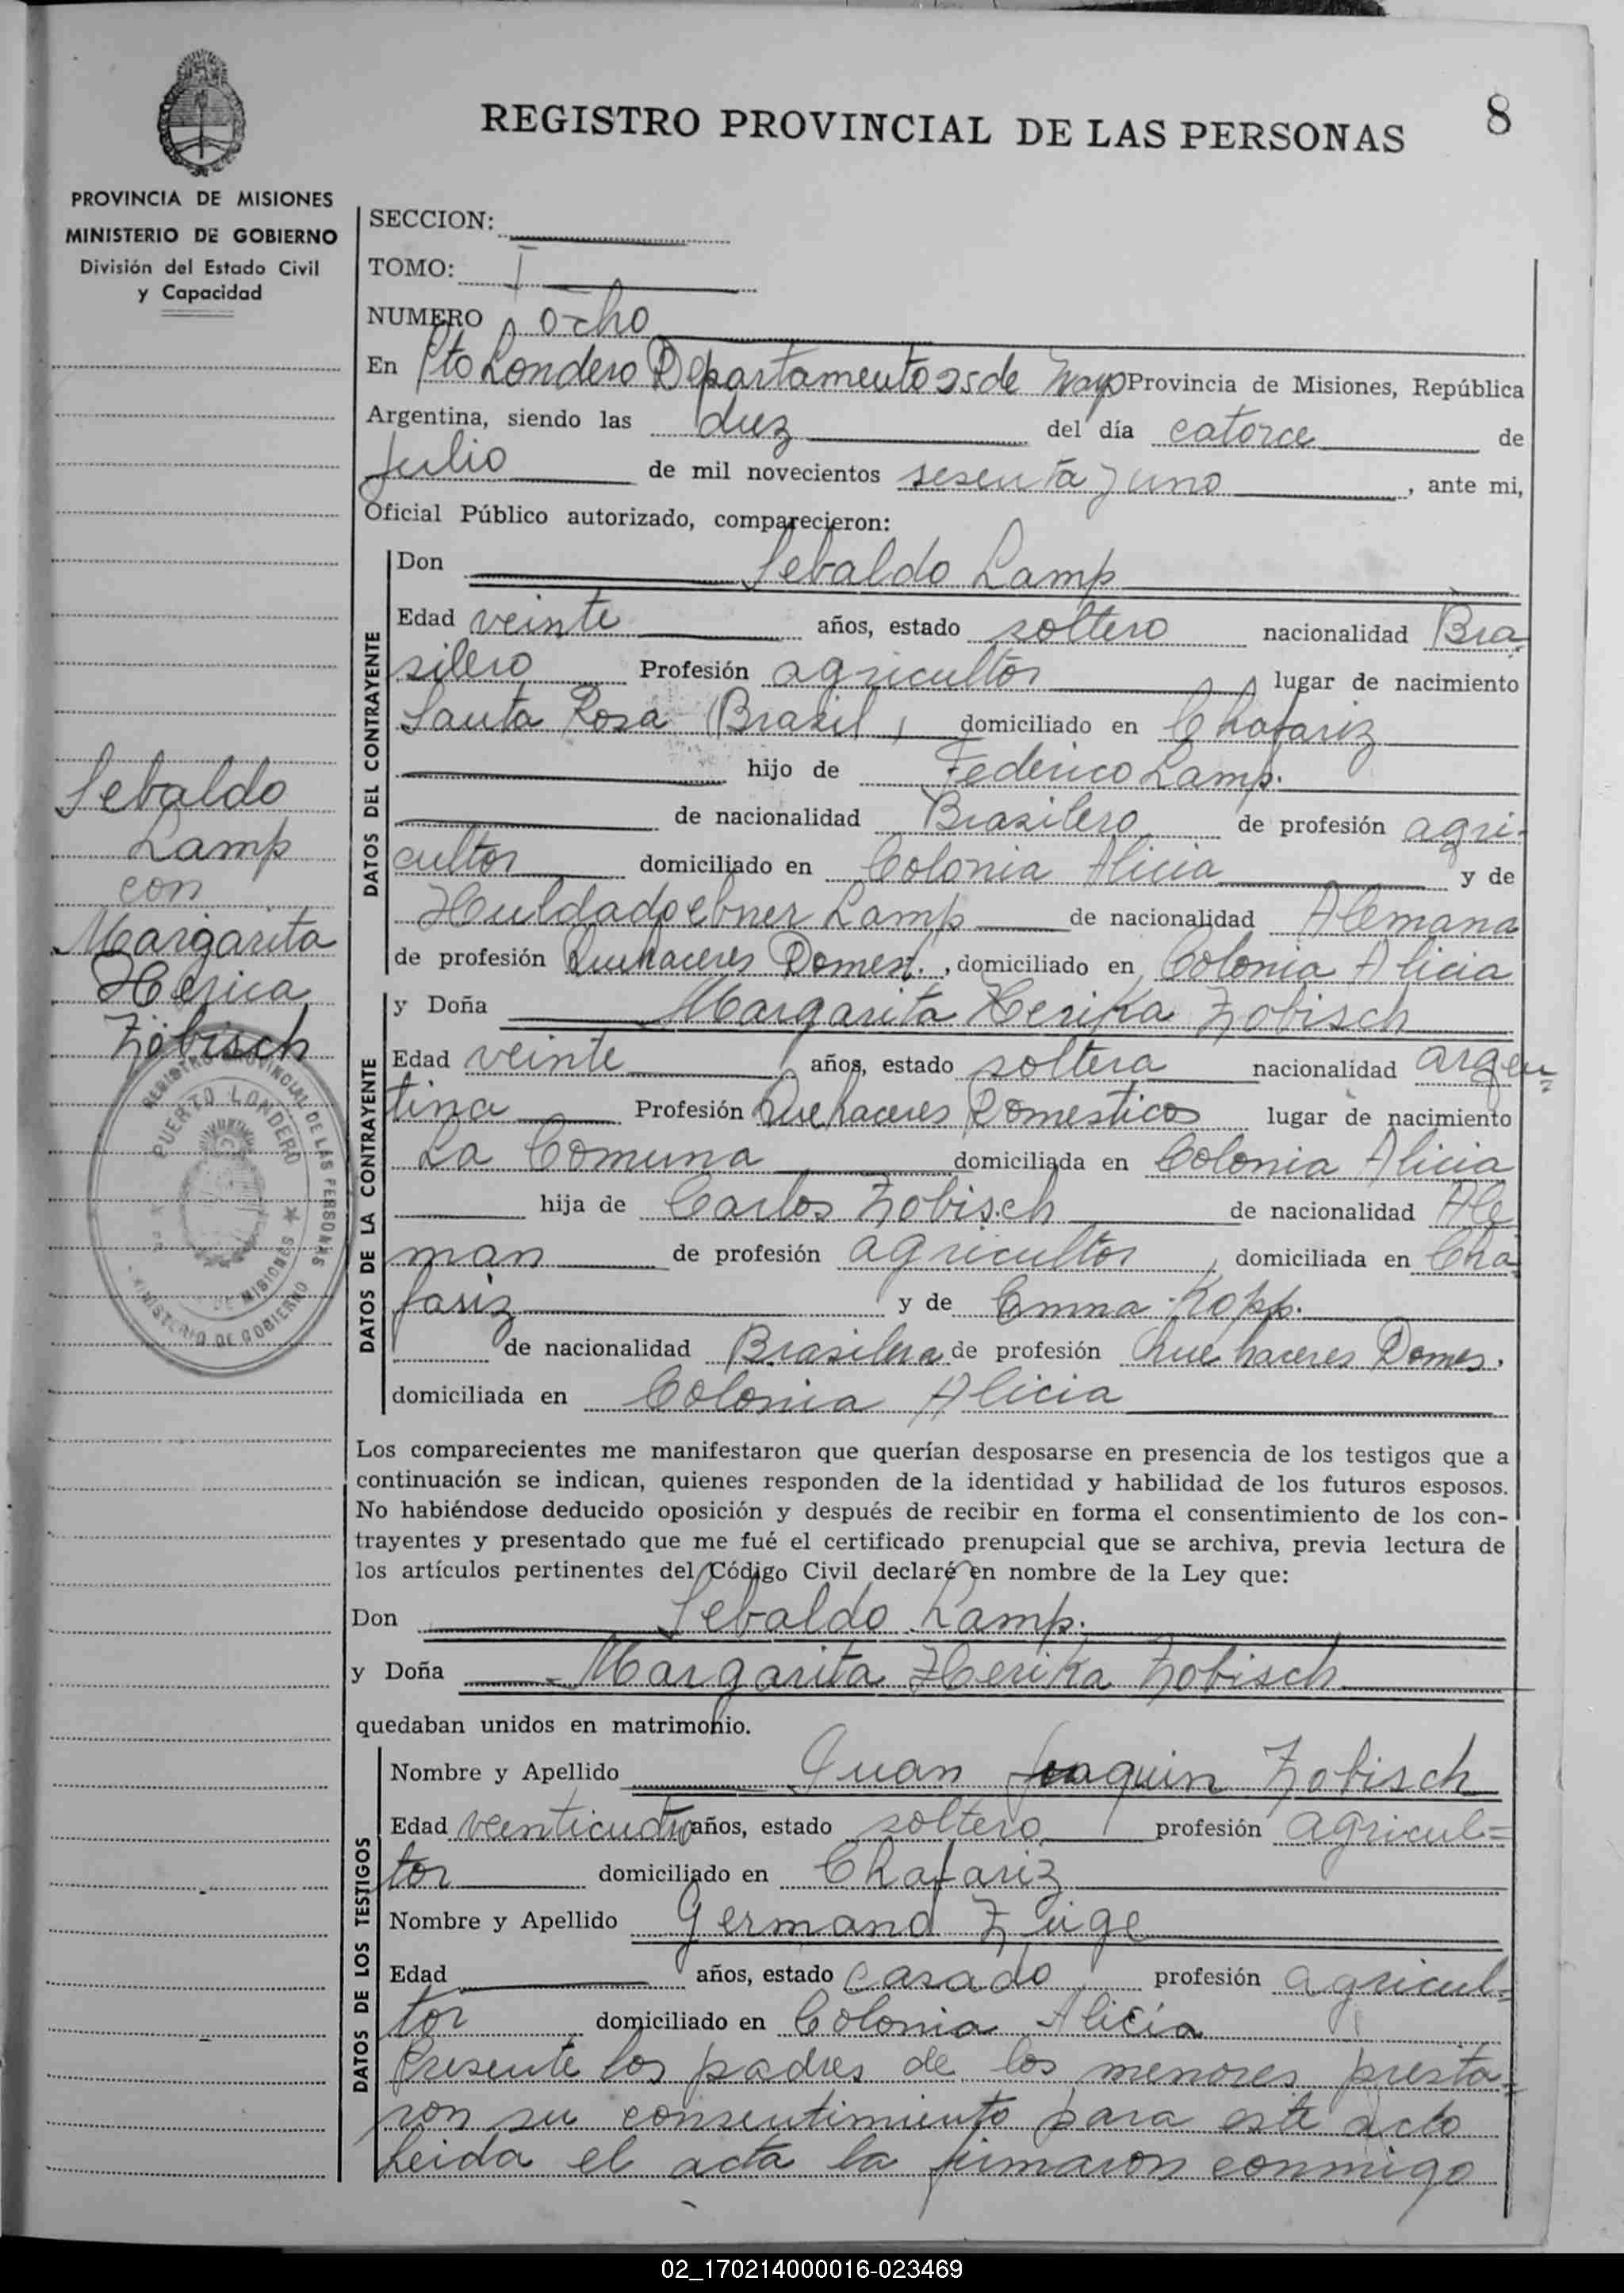 8
REGISTRO PROVINCIAL DE LAS PERSONAS
PROVINCIA DE MISIONES
MINISTERIO DE GOBIERNO
División del Estado Civil
y Capacidad
SECCION:
TOMO: I
NUMERO ocho
En Pto Londero Departamento 25 de Mayo Provincia de Misiones, República
Argentina, siendo las diez del día catorce de
Julio de mil novecientos sesenta y uno, ante mi,
Oficial Público autorizado, comparecieron:
DATOS DEL CONTRAYENTE
Don Sebaldo Lamp
Edad veinte años, estado soltero nacionalidad Bra
silero Profesión agricultor lugar de nacimiento
Santa Rosa (Brazil) domiciliado en Chafariz
hijo de Federico Lamp.
de nacionalidad Brazilero de profesión agri-
cultor domiciliado en Colonia Alicia y de
Lamp de nacionalidad Alemana
de profesión Quehaceres Domest., domiciliado en Colonia Alicia
Sebaldo
Lamp
con
Margarita
Herica
Zobisch
REGISTRO PROVINCIAL DE LAS PERSONAS
PUERTO LONDERO
DE MISIONES
MINISTERIO DE GOBIERNO
DATOS DE LA CONTRAYENTE
y Doña Margarita Herika Zobisch
Edad veinte años, estado soltera nacionalidad argen=
tina Profesión Quehaceres Domesticos lugar de nacimiento
La Comuna domiciliada en Colonia Alicia
hija de Carlos Zobisch de nacionalidad Ale
man de profesión agricultor, domiciliada en Cha
fariz y de Emma Kopp.
de nacionalidad Brasilera de profesión Que haceres Domes.
domiciliada en Colonia Alicia
Los comparecientes me manifestaron que querían desposarse en presencia de los testigos que a
continuación se indican, quienes responden de la identidad y habilidad de los futuros esposos.
No habiéndose deducido oposición y después de recibir en forma el consentimiento de los con-
trayentes y presentado que me fué el certificado prenupcial que se archiva, previa lectura de
los artículos pertinentes del Código Civil declaré en nombre de la Ley que:
Don Sebaldo Lamp.
y Doña Margarita Herika Zobisch
quedaban unidos en matrimonio.
DATOS DE LOS TESTIGOS
Nombre y Apellido Juan Joaquin Zobisch
Edad veinticuatro años, estado soltero profesión agricul=
tor domiciliado en Chafariz
Nombre y Apellido Germano Züge
Edad años, estado casado profesión agricul=
tor domiciliado en Colonia Alicia
Presente los padres de los menores presta=
ron su consentimiento para este acto
Leida el acta la firmaron conmigo
02_170214000016-023469